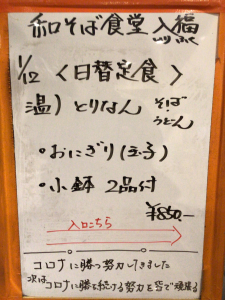 和そば食堂 入福
1/12 〈日替定食〉
温)とりなん そば・うどん
・おにぎり(玉子)
・小鉢 2品付
¥850-
入口こちら
コロナに勝つ努力してきました
次はコロナに勝ち続ける努力を皆で頑張る